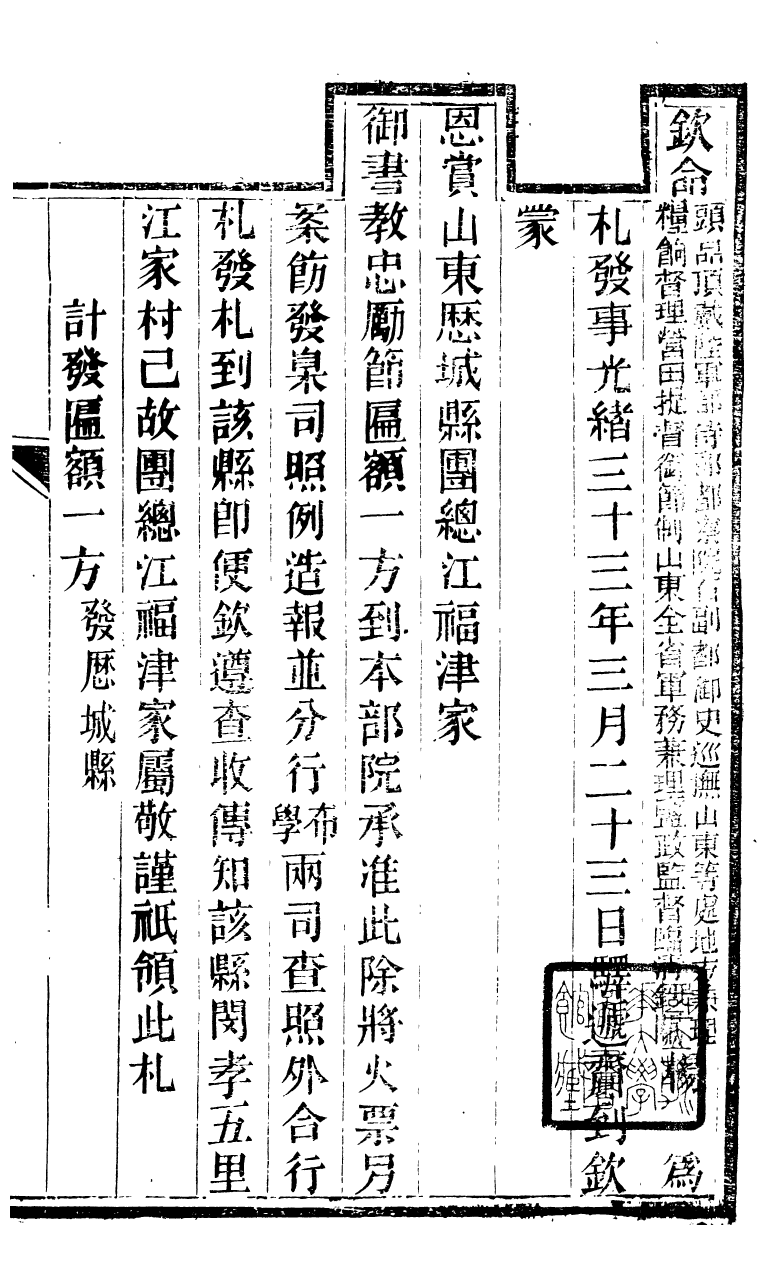 欽命
頭品頂戴陸軍部侍郎都察院右副都御史巡撫山東等處地方兼理
糧餉督理營田提督銜節制山東全省軍務兼理鹽政監督臨清
為
札發事光緒三十三年三月二十三日驛遞齎到欽
蒙
恩賞山東歷城縣團總江福津家
御書教忠勵節匾額一方到本部院承准此除將火票另
案飭發臬司照例造報並分行布學兩司查照外合行
札發札到該縣即便欽遵查收傳知該縣閔孝五里
江家村已故團總江福津家屬敬謹祇領此札
計發匾額一方發歷城縣